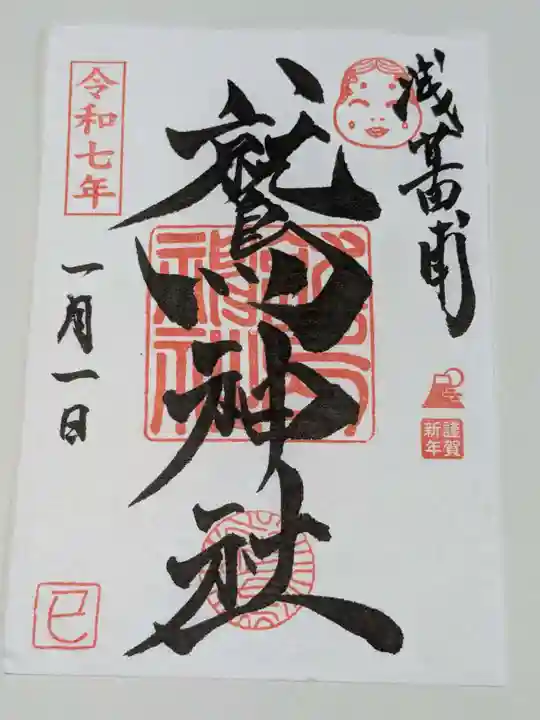 浅草田甫
鷲神社
謹賀
新年
令和七年
一月一日
巳